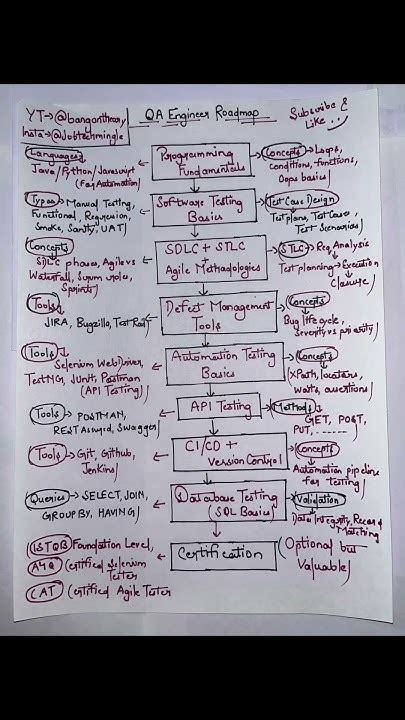 YT→@bangontheory
Insta→@Jobtechmingle
QA Engineer Roadmap
Subscribe &
Like
Languages
Java/Python/Javascript
(For Automation)
Programming
Fundamentals
Concepts → Loops,
Conditions, functions,
Oops basics
Types → Manual Testing,
Functional, Regression,
Smoke, Sanity, UAT
Software Testing
Basics
Test Case Design
Test plans, Test Cases,
Test Scenarios
Concepts
SDLC phases, Agile vs
Waterfall, Scrum roles,
Sprints
SDLC + STLC
+
Agile Methodologies
STLC → Req Analysis
Test planning → Execution
Closure
Tools
JIRA, Bugzilla, Test Rail
Defect Management
Tools
Concepts
Bug life cycle,
Severity vs priority
Tools
Selenium WebDriver,
TestNG, JUnit, Postman
(API Testing)
Automation Testing
Basics
Concepts
XPath, locators,
waits, assertions
Tools → POSTMAN,
REST Assured, Swagger
API Testing
Methods
GET, POST,
PUT, ------
Tools → Git, Github,
Jenkins
CI/CD +
Version Control
Concepts
Automation pipeline
for testing
Queries → SELECT, JOIN,
GROUP BY, HAVING
Database Testing
(SQL Basics)
Validation
Data Integrity, Record
Matching
ISTQB Foundation Level,
Certified Selenium
Tester
CAT Certified Agile Tester
Certification
(Optional but
Valuable)